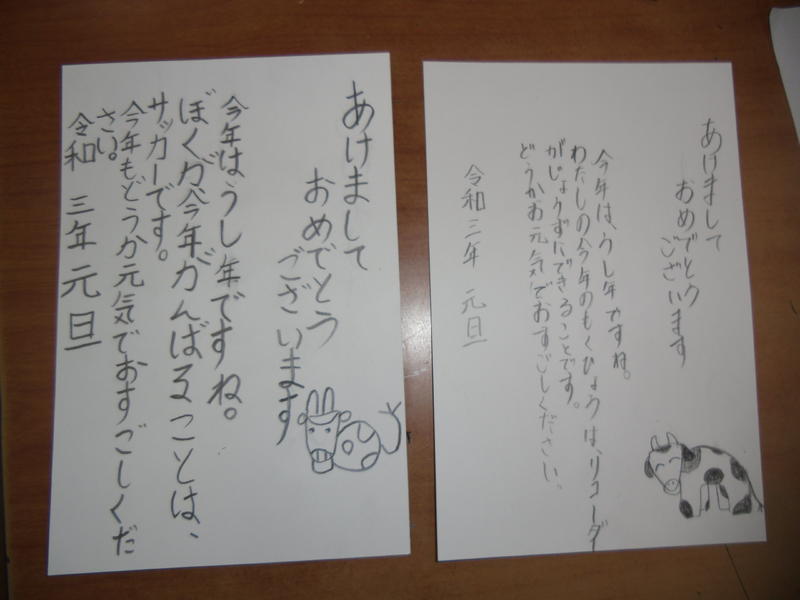 あけまして
おめでとう
ございます
今年はうし年ですね。
ぼくが今年がんばることは、
サッカーです。
今年もどうか元気でおすごしくだ
さい。
令和 三年 元旦
あけまして
おめでとう
ございます
今年は、うし年ですね。
わたしの今年のもくひょうは、リコーダー
がじょうずにできることです。
どうかお元気でおすごしください。
令和三年 元旦